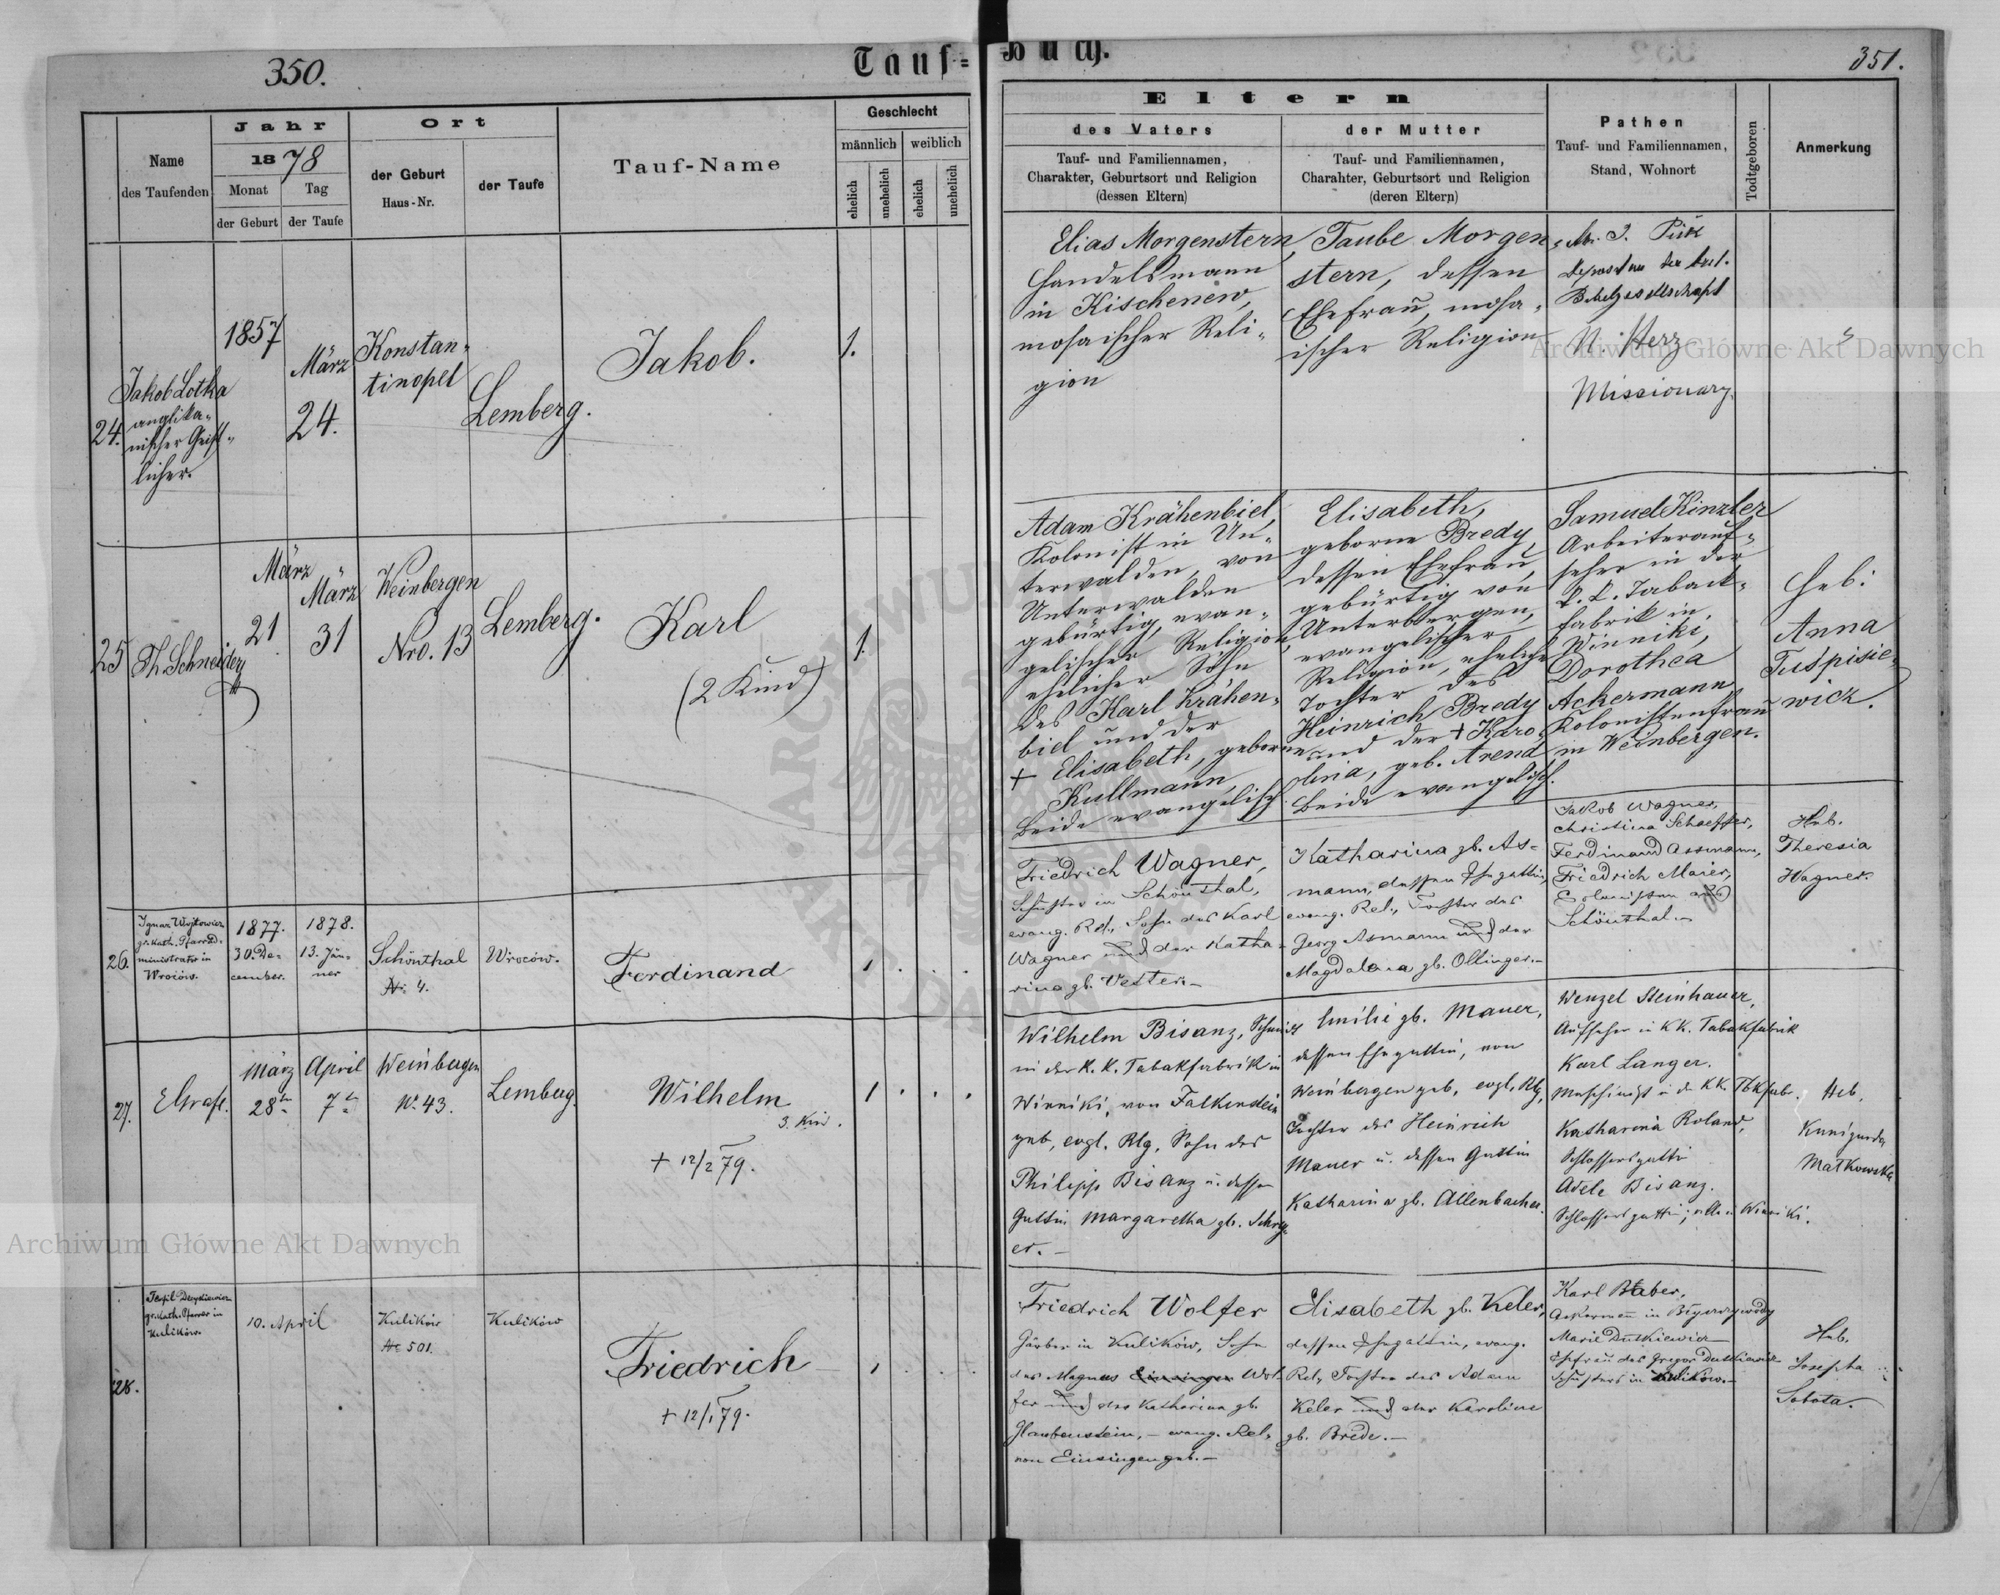 350.
Tauf=
Buch.
351.
Name
des Taufenden
Jahr
1878
Monat
der Geburt
Tag
der Taufe
Ort
der Geburt
Haus-Nr.
der Taufe
Tauf-Name
Geschlecht
männlich
weiblich
ehelich
unehelich
ehelich
unehelich
Eltern
des Vaters
Tauf- und Familiennamen,
Charakter, Geburtsort und Religion
(dessen Eltern)
der Mutter
Tauf- und Familiennamen,
Charahter, Geburtsort und Religion
(deren Eltern)
Pathen
Tauf- und Familiennamen,
Stand, Wohnort
Todtgeboren
Anmerkung
24.
Jakob Lotka
anglika=
nischer Geist=
licher.
1857
März
24.
Konstan=
tinopel
Lemberg.
Jakob.
1.
Elias Morgenstern,
Handelsmann
in Kischenew,
mosaischer Reli=
gion
Taube Morgen=
stern, dessen
Ehefrau, mosa=
ischer Religion
der
Bibelgesellschaft
N. Herz
Missionary.
25
Th. Schneider
März
21
März
31
Weinbergen
Nro. 13
Lemberg.
Karl
(2 Kind)
1.
Adam Krähenbiel,
Kolonist in Un=
terwalden, von
Unterwalden
gebürtig, evan=
gelischer Religion,
ehelicher Sohn
des Karl Krähen=
biel und der
+ Elisabeth, geborne
Kullmann,
beide evangelisch.
Elisabeth,
geborne Bredy,
dessen Ehefrau,
gebürtig von
Unterbergen,
evangelischer
Religion, eheliche
Tochter des
Heinrich Bredy
und der + Karo=
lina, geb. Arend
beide evangelisch.
Samuel Kinzler
Arbeiterauf=
seher in der
k. k. Taback=
fabrik in
Winniki,
Dorothea
Ackermann
Kolonistenfrau
in Weinbergen.
Heb:
Anna
Tuspisie=
wicz.
26.
Ignaz Wojtowicz
gr. kath. Pfarrad=
ministrator in
Wroców.
1877.
30. De=
cember.
1878.
13. Jän=
ner
Schönthal
Nr. 4.
Wroców.
Ferdinand
1
Friedrich Wagner,
Schuster in Schönthal,
evang. Rel., Sohn des Karl
Wagner und der Katha=
rina gb. Vester.
Katharina gb. As=
mann, dessen Ehegattin,
evang. Rel., Tochter des
Georg Asmann und der
Magdalena gb. Ollinger.
Jakob Wagner,
Christina Schaeffer,
Ferdinand Assmann,
Friedrich Maier,
Colonisten aus
Schönthal.
Heb.
Theresia
Wagner.
27.
EGraf.
März
28
April
7
Weinbergen
Nr. 43.
Lemberg.
Wilhelm
3. Kind.
+ 12/2 79.
1
Wilhelm Bisanz, Schmied
in der K. K. Tabakfabrik in
Winniki, von Falkenstein
geb, evgl. Rlg, Sohn des
Philipp Bisanz u. dessen
Gattin Margaretha gb. Schrey=
er.
Emilie gb. Mauer,
dessen Ehegattin, von
Weinbergen geb, evgl, Rlg,
Tochter des Heinrich
Mauer u. dessen Gattin
Katharina gb. Allenbacher.
Wenzel Steinhauer,
Aufseher in KK. Tabakfabrik
Karl Langer.
Maschinist in d KK. Tbkfab.
Katharina Roland,
Schlossersgattin
Adele Bisanz.
Schlossersgattin; alle in Winniki.
Heb.
Kunigunda
Matkowska
28.
gr. kath. Pfarrer in
Kulików.
10. April
Kulików
Nr 501.
Kulików
Friedrich
+ 12/1 79.
1
Friedrich Wolfer
Gärber in Kulików, Sohn
des Magnus Einsingen Wol=
fer und der Katharina gb.
Haubenstein, evang. Rel,
von Einsingen geb.
Elisabeth gb. Keler,
dessen Ehegattin, evang.
Rel, Tochter des Adam
Keler und der Karoline
gb. Brede.
Karl
Marie Dutkiewicz
Ehefrau des Gregor Dutkiewicz
Schusters in Kulików.
Heb.
Josepha
Sobota.
Archiwum Główne Akt Dawnych
Archiwum Główne Akt Dawnych